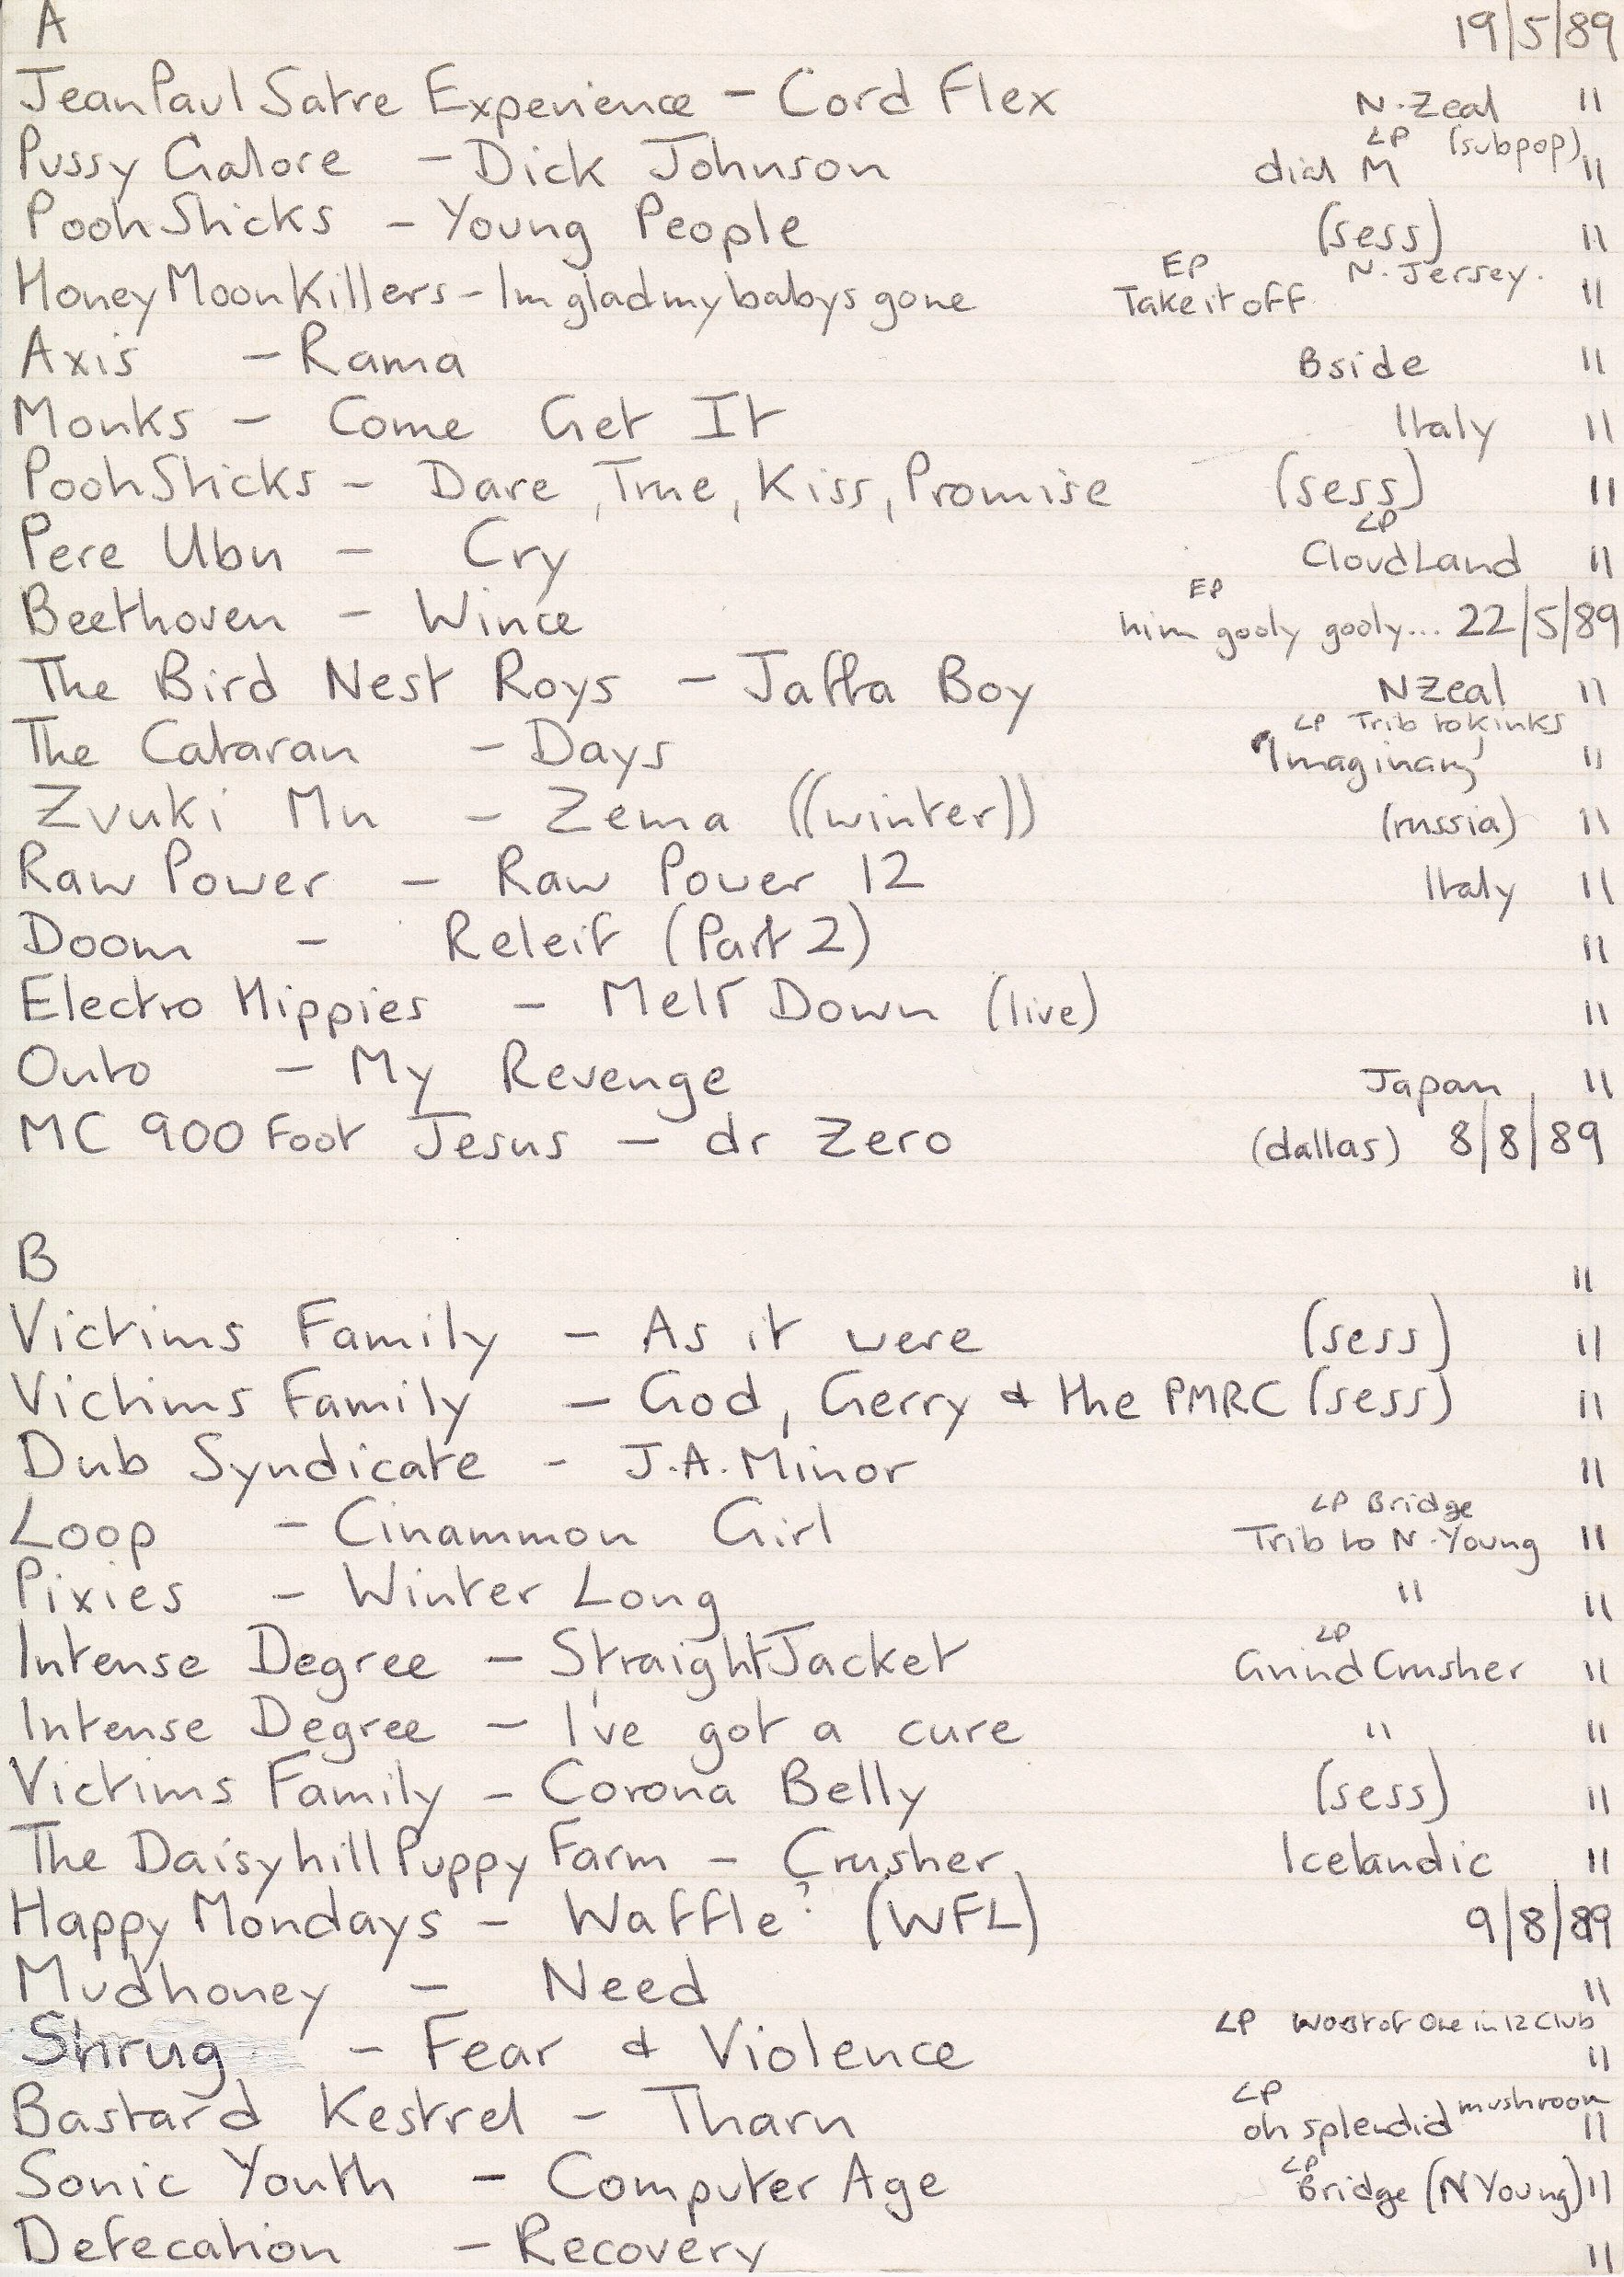 A 19/5/89
Jean Paul Satre Experience - Cord Flex N.Zeal "
Pussy Galore - Dick Johnson LP dial M (subpop) "
Pooh Sticks - Young People (sess) "
Honey Moon Killers - Im glad my babys gone EP Take it off N. Jersey. "
Axis - Rama Bside "
Monks - Come Get It Italy "
Pooh Sticks - Dare, True, Kiss, Promise (sess) "
Pere Ubu - Cry LP CloudLand "
Beethoven - Wince EP him gooly gooly... 22/5/89
The Bird Nest Roys - Jaffa Boy NZeal "
The Cataran - Days LP Trib to Kinks "Imaginary" "
Zvuki Mu - Zema ((winter)) (russia) "
Raw Power - Raw Power 12 Italy "
Doom - Releif (Part 2) "
Electro Hippies - Melt Down (live) "
Outo - My Revenge Japan "
MC 900 Foot Jesus - dr Zero (dallas) 8/8/89
B "
Victims Family - As it were (sess) "
Victims Family - God, Gerry & the PMRC (sess) "
Dub Syndicate - J.A. Minor "
Loop - Cinammon Girl LP Bridge Trib to N. Young "
Pixies - Winter Long " "
Intense Degree - StraightJacket LP Grind Crusher "
Intense Degree - I've got a cure " "
Victims Family - Corona Belly (sess) "
The Daisyhill Puppy Farm - Crusher Icelandic "
Happy Mondays - Waffle? (WFL) 9/8/89
Mudhoney - Need "
Shrug - Fear & Violence LP Worst of One in 12 Club "
Bastard Kestrel - Tharn LP oh splendid mushroom "
Sonic Youth - Computer Age LP Bridge (N Young) "
Defecation - Recovery "